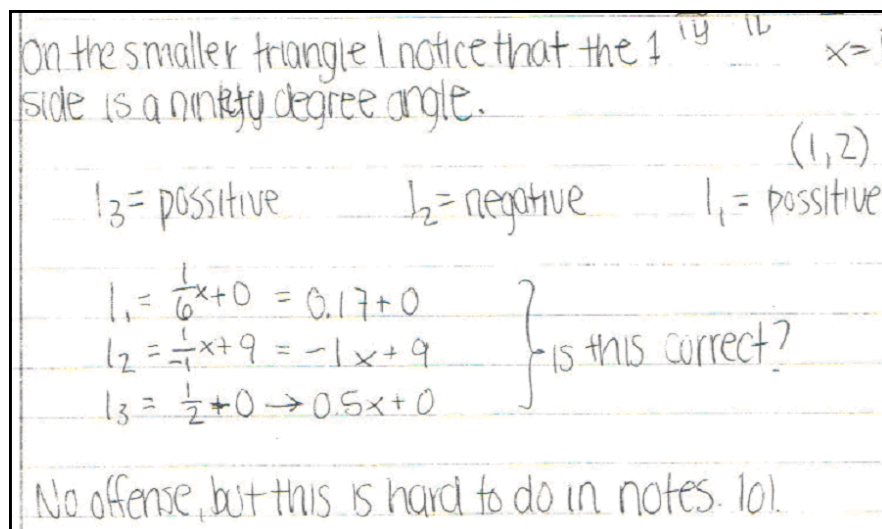 on the smaller triangle I notice that the 1 x=
side is a ninety degree angle.
(1,2)
l₃= possitive l₂= negative l₁= possitive
l₁= 1/6x+0 = 0.17+0
l₂ = 1/-1x+9 = -1x+9
is this correct?
l₃ = 1/2+0 → 0.5x+0
No offense, but this is hard to do in notes. lol.